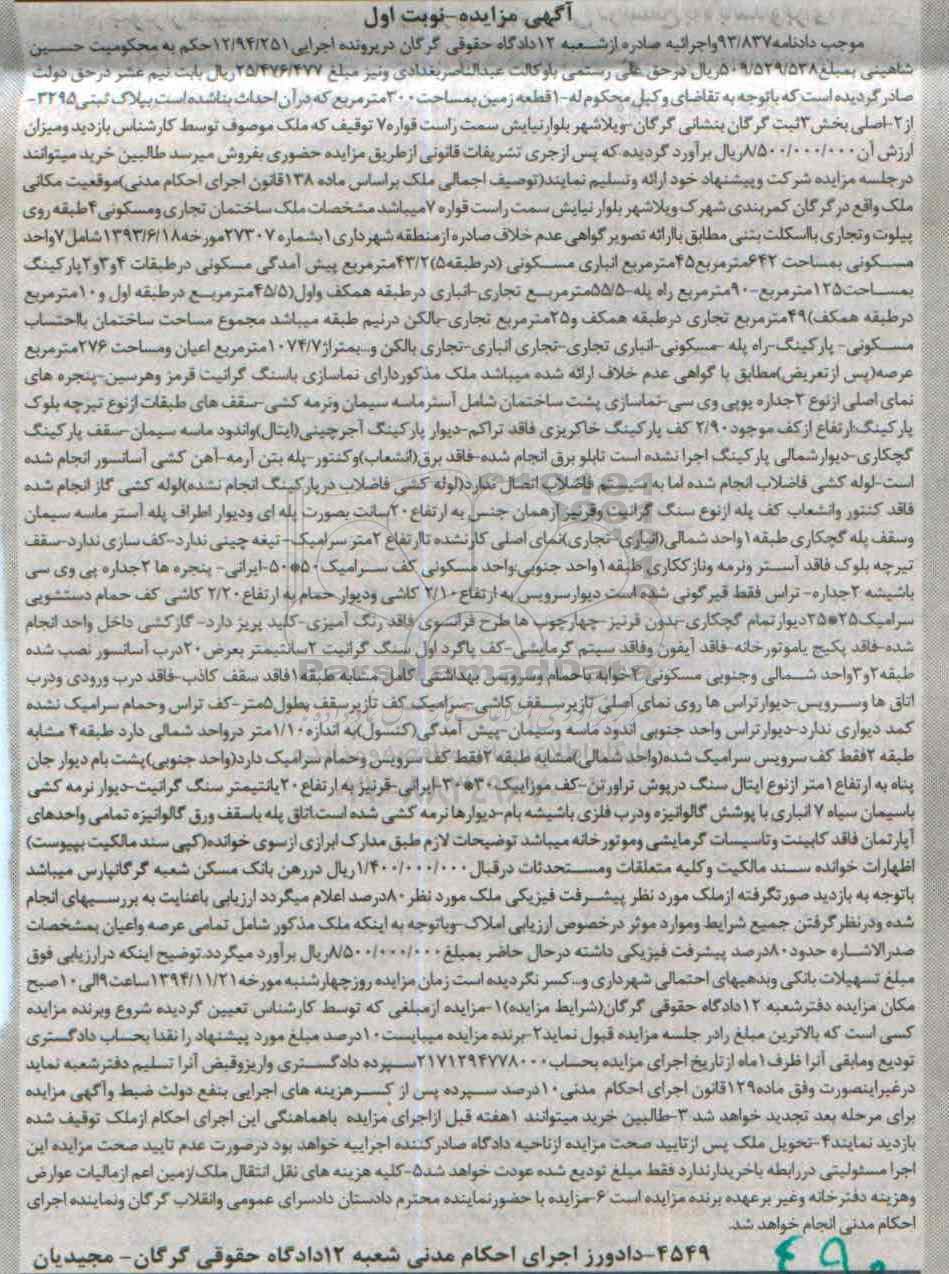 آگهی مزایده-نوبت اول
موجب دادنامه۹۳/۸۳۷واجرائیه صادره ازشعبه ۱۲دادگاه حقوقی گرگان درپرونده اجرایی۱۲/۹۴/۲۵۱حکم به محکومیت حسین
شاهینی بمبلغ۵۰۹/۵۲۹/۵۳۸ریال درحق علی رستمی باوکالت عبدالناصربغدادی ونیز مبلغ ۲۵/۴۷۶/۴۷۷ریال بابت نیم عشر درحق دولت
صادرگردیده است که باتوجه به تقاضای وکیل محکوم له-۱قطعه زمین بمساحت۳۰۰مترمربع که درآن احداث بناشده است بپلاک ثبتی۳۲۹۵-
از۲-اصلی بخش۳ثبت گرگان بنشانی گرگان-ویلاشهر بلوارنیایش سمت راست قواره۷ توقیف که ملک موصوف توسط کارشناس بازدید ومیزان
ارزش آن۸/۵۰۰/۰۰۰/۰۰۰ریال برآورد گردیده.که پس ازجری تشریفات قانونی ازطریق مزایده حضوری بفروش میرسد طالبین خرید میتوانند
درجلسه مزایده شرکت وپیشنهاد خود ارائه وتسلیم نمایند(توصیف اجمالی ملک براساس ماده ۱۳۸قانون اجرای احکام مدنی)موقعیت مکانی
ملک واقع درگرگان کمربندی شهرک ویلاشهر بلوار نیایش سمت راست قواره ۷میباشد مشخصات ملک ساختمان تجاری ومسکونی۴طبقه روی
پیلوت وتجاری بااسکلت بتنی مطابق باارائه تصویرگواهی عدم خلاف صادره ازمنطقه شهرداری۱بشماره ۲۷۳۰۷مورخه۱۳۹۳/۶/۱۸شامل۷واحد
مسکونی بمساحت ۶۴۲مترمربع۴۵مترمربع انباری مسکونی (درطبقه۵)۴۳/۲مترمربع پیش آمدگی مسکونی درطبقات ۴و۳و۲پارکینگ
بمساحت۱۲۵مترمربع-۹۰مترمربع راه پله-۵۵/۵مترمربع تجاری-انباری درطبقه همکف واول(۴۵/۵مترمربع درطبقه اول و۱۰مترمربع
درطبقه همکف)۴۹مترمربع تجاری درطبقه همکف و۲۵مترمربع تجاری-بالکن درنیم طبقه میباشد مجموع مساحت ساختمان بااحتساب
مسکونی- پارکینگ-راه پله -مسکونی-انباری تجاری-تجاری انباری-تجاری بالکن و...بمتراژ۱۰۷۴/۷مترمربع اعیان ومساحت ۲۷۶مترمربع
عرصه(پس ازتعریض)مطابق با گواهی عدم خلاف ارائه شده میباشد ملک مذکوردارای نماسازی باسنگ گرانیت قرمز وهرسین-پنجره های
نمای اصلی ازنوع ۲جداره یوپی وی سی-نماسازی پشت ساختمان شامل آسترماسه سیمان ونرمه کشی-سقف های طبقات ازنوع تیرچه بلوک
پارکینگ:ارتفاع ازکف موجود۲/۹۰ کف پارکینگ خاکریزی فاقد تراکم-دیوار پارکینگ آجرچینی(ایتال)واندود ماسه سیمان-سقف پارکینگ
گچکاری-دیوارشمالی پارکینگ اجرا نشده است تابلو برق انجام شده-فاقد برق(انشعاب)وکنتور-پله بتن آرمه-آهن کشی آسانسور انجام شده
است-لوله کشی فاضلاب انجام شده اما به سیستم فاضلاب اتصال ندارد(لوله کشی فاضلاب درپارکینگ انجام نشده)لوله کشی گاز انجام شده
فاقد کنتور وانشعاب کف پله ازنوع سنگ گرانیت وقرنیز ازهمان جنس به ارتفاع ۲۰سانت بصورت پله ای ودیوار اطراف پله آستر ماسه سیمان
وسقف پله گچکاری طبقه۱واحد شمالی(انباری-تجاری)نمای اصلی کارنشده تاارتفاع ۲متر سرامیک-تیغه چینی ندارد-کف سازی ندارد-سقف
تیرچه بلوک فاقد آستر ونرمه ونازککاری طبقه۱واحد جنوبی:واحد مسکونی کف سرامیک۵۰*۵۰-ایرانی- پنجره ها ۲جداره پی وی سی
باشیشه ۲جداره- تراس فقط قیرگونی شده است دیوارسرویس به ارتفاع۲/۱۰ کاشی ودیوار حمام به ارتفاع۲/۲۰ کاشی کف حمام دستشویی
سرامیک۲۵*۲۵دیوارتمام گچکاری-بدون قرنیز-چهارچوب ها طرح فرانسوی فاقد رنگ آمیزی-کلید پریز دارد- گازکشی داخل واحد انجام
شده-فاقد پکیج یاموتورخانه-فاقد آیفون وفاقد سیتم گرمایشی-کف پاگرد اول سنگ گرانیت ۲سانتیمتر بعرض ۲۰درب آسانسور نصب شده
طبقه۲و۳واحد شمالی وجنوبی مسکونی ۲خوابه باحمام وسرویس بهداشتی کامل مشابه طبقه ۱فاقد سقف کاذب-فاقد درب ورودی ودرب
اتاق ها وسرویس-دیوارتراس ها روی نمای اصلی تازیرسقف کاشی-سرامیک کف تازیرسقف بطول۵متر-کف تراس وحمام سرامیک نشده
کمد دیواری ندارد-دیوارتراس واحد جنوبی اندود ماسه وسیمان-پیش آمدگی(کنسول)به اندازه ۱/۱۰متر درواحد شمالی دارد طبقه۴ مشابه
طبقه ۲فقط کف سرویس سرامیک شده(واحد شمالی)مشابه طبقه ۲فقط کف سرویس وحمام سرامیک دارد(واحد جنوبی)پشت بام دیوار جان
پناه به ارتفاع۱متر ازنوع ایتال سنگ درپوش تراورتن-کف موزاییک۳۰*۳۰-ایرانی-قرنیز به ارتفاع ۲۰یانتیمتر سنگ گرانیت-دیوار نرمه کشی
باسیمان سیاه ۷انباری با پوشش گالوانیزه ودرب فلزی باشیشه بام-دیوارها نرمه کشی شده است.اتاق پله باسقف ورق گالوانیزه تمامی واحدهای
آپارتمان فاقد کابینت وتاسیسات گرمایشی وموتورخانه میباشد توضیحات لازم طبق مدارک ابرازی ازسوی خوانده(کپی سند مالکیت بپیوست)
اظهارات خوانده سند مالکیت وکلیه متعلقات ومستحدثات درقبال۱/۴۰۰/۰۰۰/۰۰۰ ریال دررهن بانک مسکن شعبه گرگانپارس میباشد
باتوجه به بازدید صورتگرفته ازملک مورد نظر پیشرفت فیزیکی ملک مورد نظر۸۰درصد اعلام میگردد ارزیابی باعنایت به بررسیهای انجام
شده ودرنظرگرفتن جمیع شرایط وموارد موثر درخصوص ارزیابی املاک-وباتوجه به اینکه ملک مذکور شامل تمامی عرصه واعیان بمشخصات
صدرالاشاره حدود۸۰درصد پیشرفت فیزیکی داشته درحال حاضر بمبلغ۸/۵۰۰/۰۰۰/۰۰۰ریال برآورد میگردد.توضیح اینکه درارزیابی فوق
مبلغ تسهیلات بانکی وبدهیهای احتمالی شهرداری و...کسر نگردیده است زمان مزایده روزچهارشنبه مورخه ۱۳۹۴/۱۱/۲۱ساعت۹الی۱۰صبح
مکان مزایده دفترشعبه ۱۲دادگاه حقوقی گرگان(شرایط مزایده)۱-مزایده ازمبلغی که توسط کارشناس تعیین گردیده شروع وبرنده مزایده
کسی است که بالاترین مبلغ رادر جلسه مزایده قبول نماید۲-برنده مزایده میبایست۱۰درصد مبلغ مورد پیشنهاد را نقدا بحساب دادگستری
تودیع ومابقی آنرا ظرف۱ماه ازتاریخ اجرای مزایده بحساب۲۱۷۱۲۹۴۷۷۸۰۰۰سپرده دادگستری واریزوقبض آنرا تسلیم دفترشعبه نماید
درغیراینصورت وفق ماده۱۲۹قانون اجرای احکام مدنی۱۰درصد سپرده پس از کسرهزینه های اجرایی بنفع دولت ضبط وآگهی مزایده
برای مرحله بعد تجدید خواهد شد ۳-طالبین خرید میتوانند ۱هفته قبل ازاجرای مزایده باهماهنگی این اجرای احکام ازملک توقیف شده
بازدید نمایند۴-تحویل ملک پس ازتایید صحت مزایده ازناحیه دادگاه صادرکننده اجراییه خواهد بود درصورت عدم تایید صحت مزایده این
اجرا مسئولیتی دررابطه باخریدارندارد فقط مبلغ تودیع شده عودت خواهد شد۵-کلیه هزینه های نقل انتقال ملک/زمین اعم ازمالیات عوارض
وهزینه دفترخانه وغیر برعهده برنده مزایده است ۶-مزایده با حضورنماینده محترم دادستان دادسرای عمومی وانقلاب گرگان ونماینده اجرای
احکام مدنی انجام خواهد شد.
۴۵۴۹-دادورز اجرای احکام مدنی شعبه ۱۲دادگاه حقوقی گرگان- مجیدیان
ParsNamadData